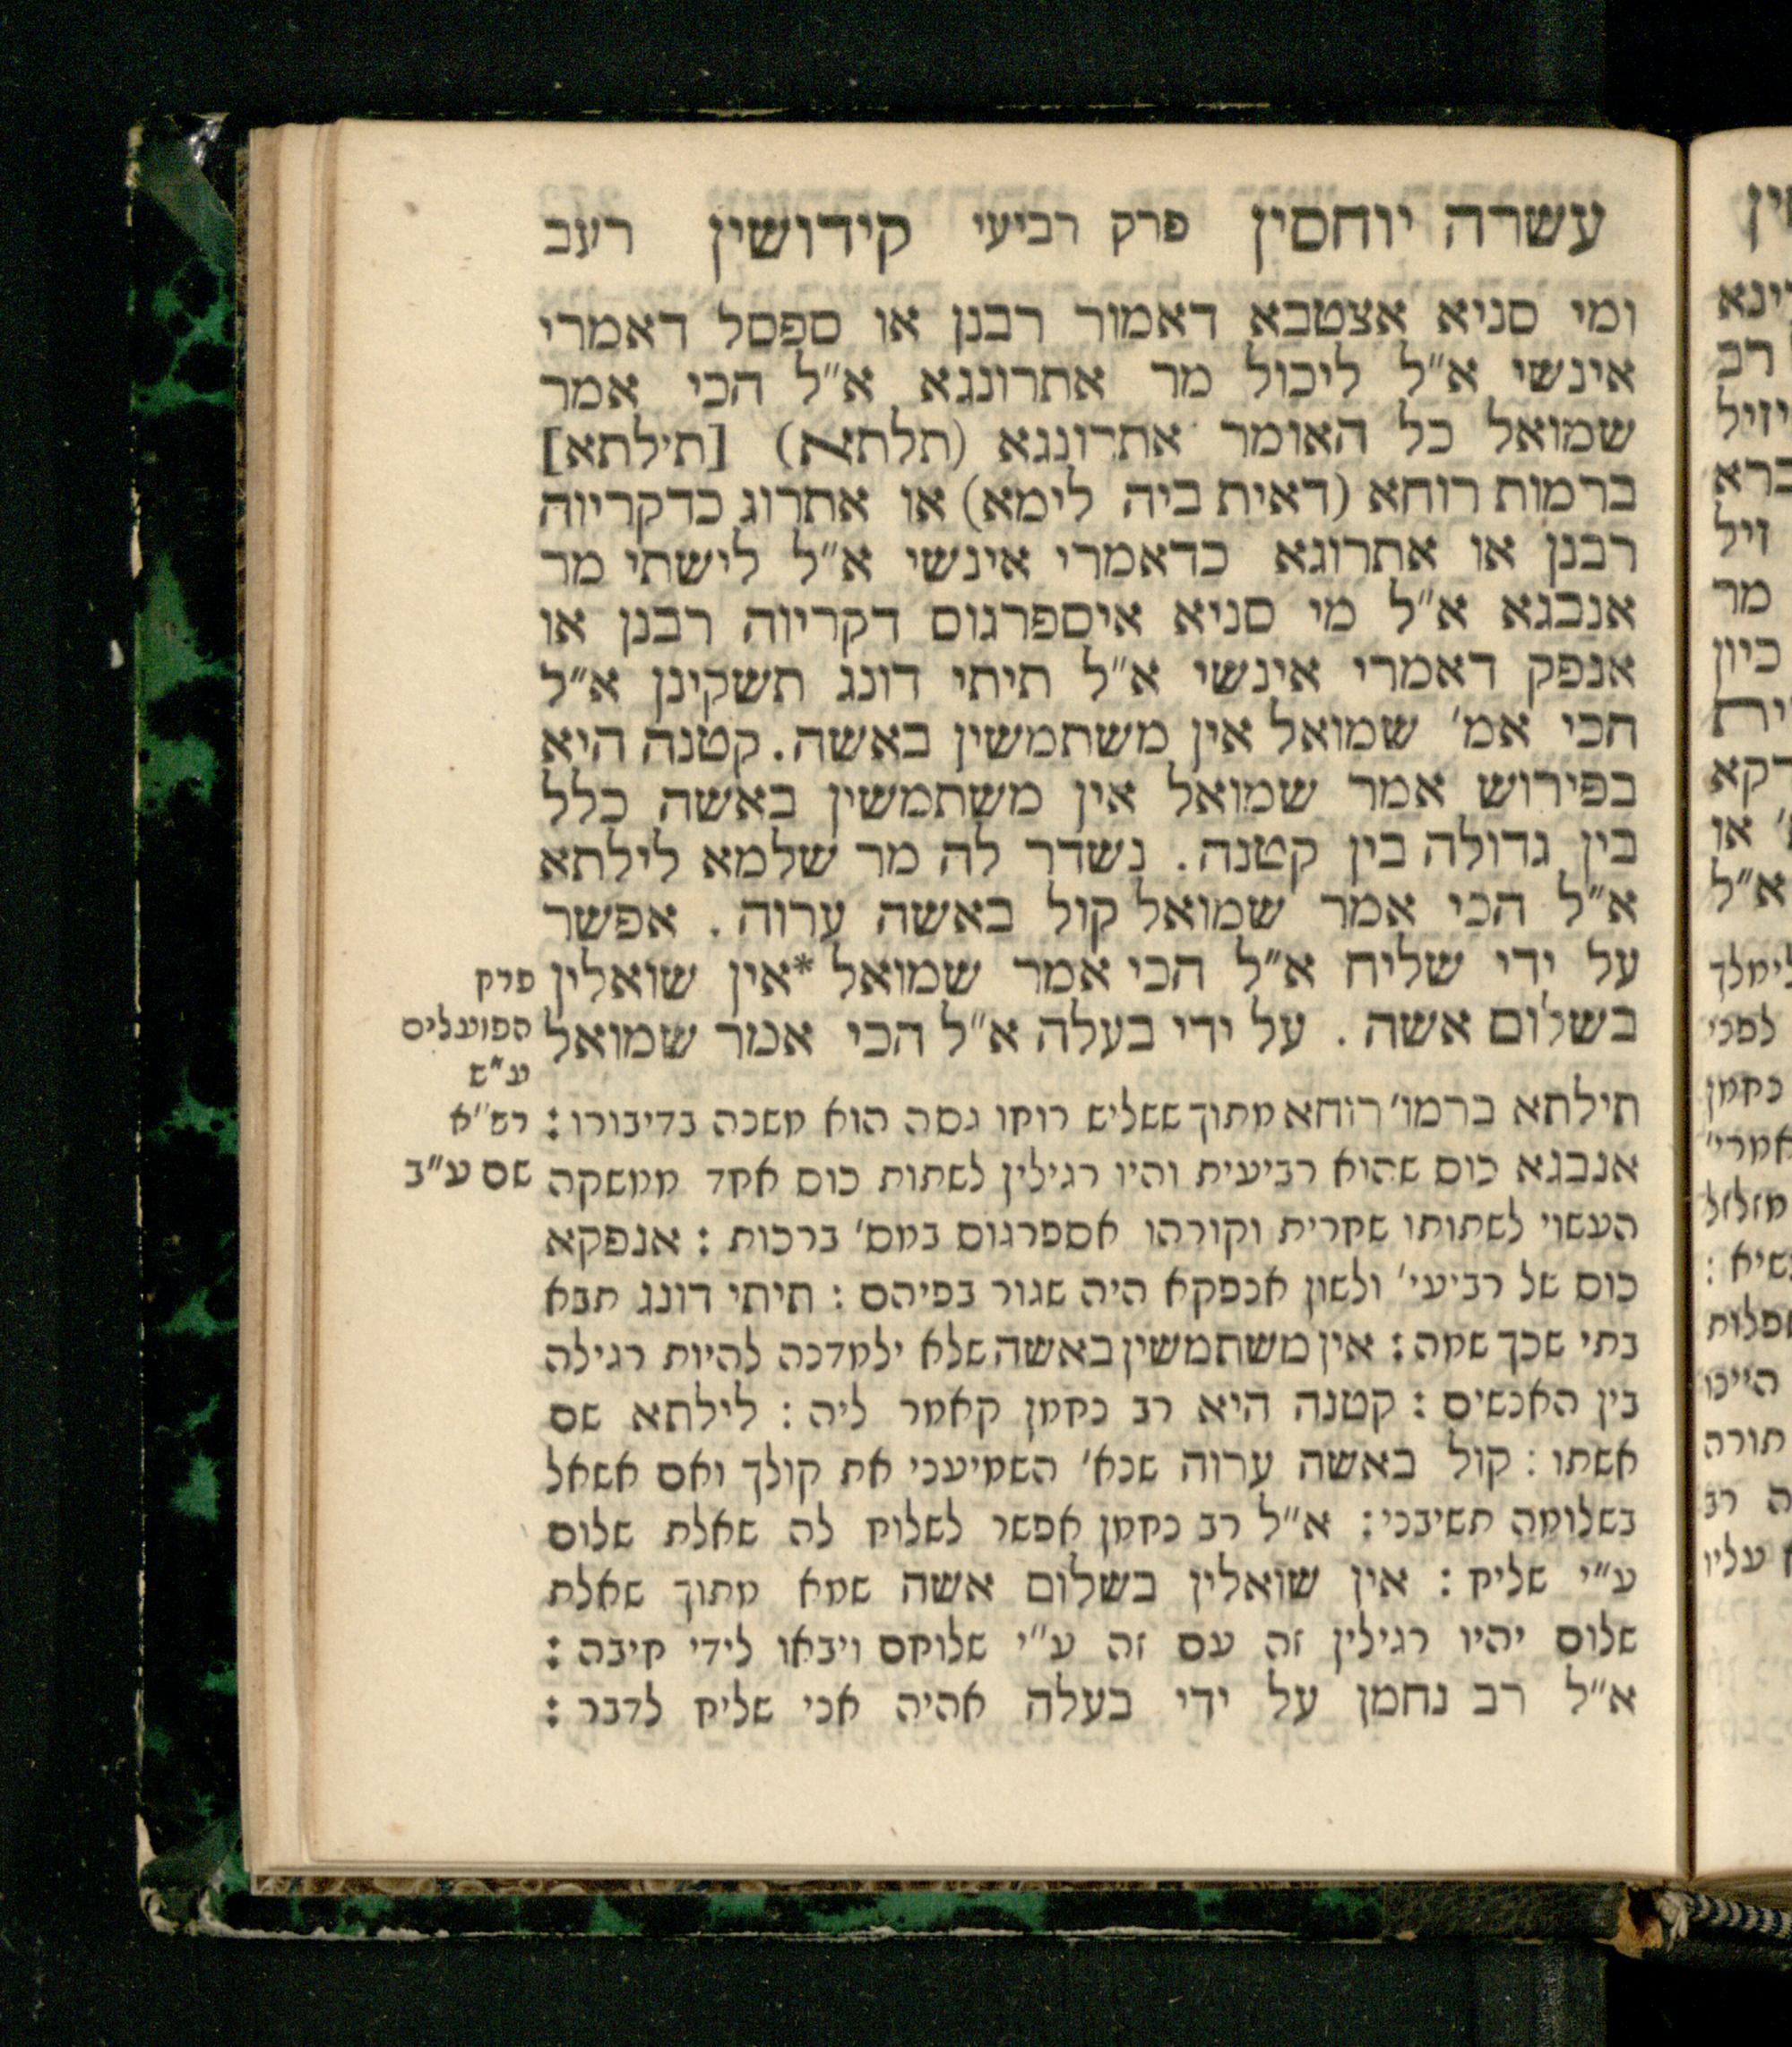 עשרה יוחסין פרק רביעי קידושין רעב
ומי סניא אצטבא דאמור רבנן או ספסל דאמרי
אינשי א״ל ליכול מר אתרונגא א״ל הכי אמר
שמואל כל האומר אתרונגא (תלתא) [תילתא]
ברמות רוחא (דאית ביה לימא) או אתרוג כדקריוה
רבנן או אתרוגא כדאמרי אינשי א״ל לישתי מר
אנבגא א״ל מי סניא איספרגוס דקריוה רבנן או
אנפק דאמרי אינשי א״ל תיתי דונג תשקינן א״ל
הכי אמ׳ שמואל אין משתמשין באשה. קטנה היא
בפירוש אמר שמואל אין משתמשין באשה כלל
בין גדולה בין קטנה. נשדר לה מר שלמא לילתא
א״ל הכי אמר שמואל קול באשה ערוה. אפשר
על ידי שליח א״ל הכי אמר שמואל *אין שואלין
בשלום אשה. על ידי בעלה א״ל הכי אמר שמואל
פרק
הפועלים
רש״א
שם ע״ב
תילתא ברמו׳ רוחא מתוך ששליש רוחו גסה הוא משנה בדיבורו:
אנבגא כוס שהוא רביעית והיו רגילין לשתות כוס אחד ממשקה
העשוי לשתותו שחרית וקורהו אספרגוס במס׳ ברכות: אנפקא
כוס של רביעי׳ ולשון אנפקא היה שגור בפיהם: תיתי דונג תבא
בתי שכך שמה: אין משתמשין באשה שלא ילמדנה להיות רגילה
בין האנשים: קטנה היא רב נחמן קאמר ליה: לילתא שם
אשתו: קול באשה ערוה שנא׳ השמיעני את קולך ואם אשאל
בשלומה תשיבני: א״ל רב נחמן אפשר לשלוח לה שאלת שלום
ע״י שליח: אין שואלין בשלום אשה שמא מתוך שאלת
שלום יהיו רגילין זה עם זה ע״י שלוחם ויבאו לידי חיבה:
א״ל רב נחמן על ידי בעלה אהיה אני שליח לדבר: